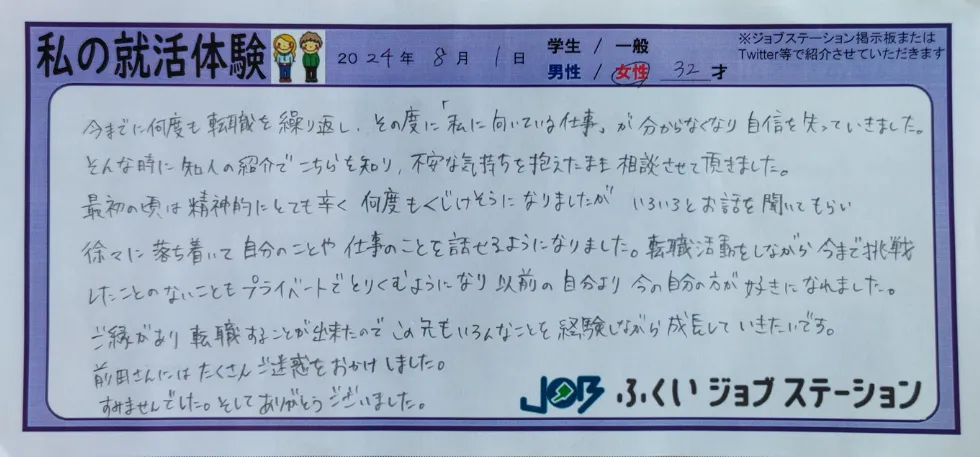 私の就活体験
2024年 8月 1日
学生 / 一般
男性 / 女性 32才
※ジョブステーション掲示板または
Twitter等で紹介させていただきます
今までに何度も転職を繰り返し、その度に「私に向いている仕事」が分からなくなり自信を失っていきました。
そんな時に知人の紹介でこちらを知り、不安な気持ちを抱えたまま相談させて頂きました。
最初の頃は精神的にとても辛く何度もくじけそうになりましたがいろいろとお話を聞いてもらい
徐々に落ち着いて自分のことや仕事のことを話せるようになりました。転職活動をしながら今まで挑戦
したことのないこともプライベートでとりくむようになり以前の自分より今の自分の方が好きになれました。
ご縁があり転職することが出来たのでこの先もいろんなことを経験しながら成長していきたいです。
前田さんにはたくさんご迷惑をおかけしました。
すみませんでした。そしてありがとうございました。
JOB ふくい ジョブ ステーション